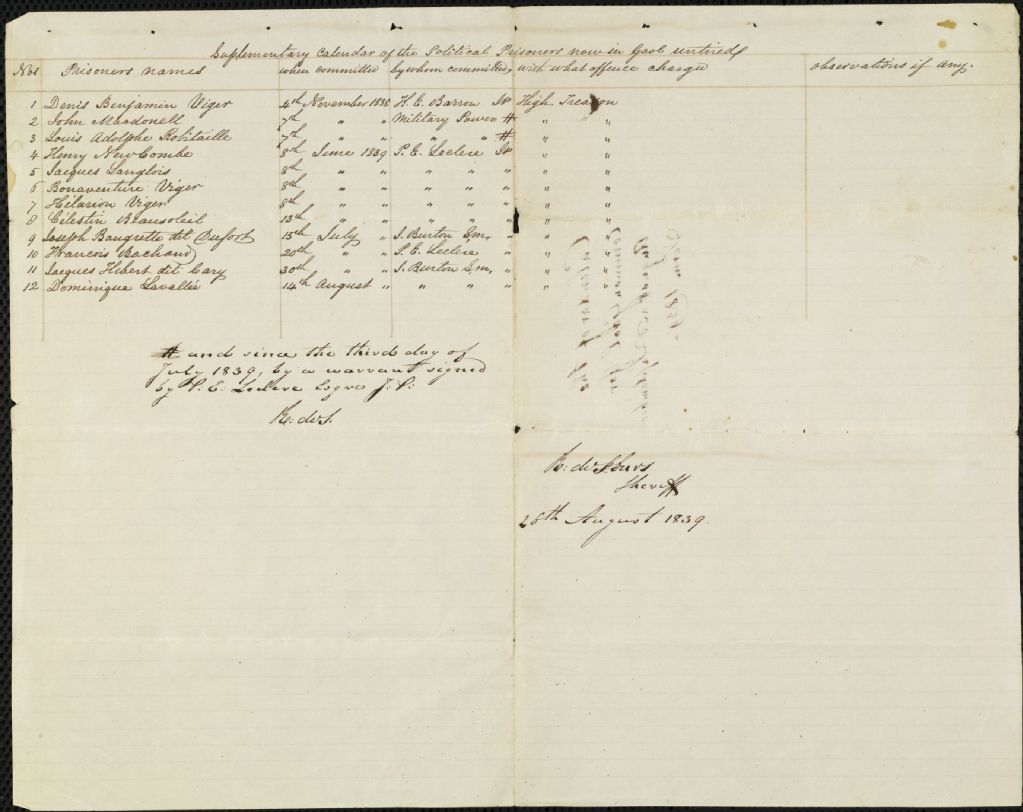 Suplementary Calendar of the Political Prisoners now in Gaol untried
Nos Prisoners names when committed by whom committed with what offence charged observations if any.
1 Denis Benjamin Viger 4th November 1838 H. E. Barron JP High Treason
2 John Macdonell 7th " " Military Power # " "
3 Louis Adolphe Robitaille 7th " " " " # " "
4 Henry NewCombe 8th June 1839 P. E. Leclere JP " "
5 Jacques Langlois 8th " " " " " " "
6 Bonaventure Viger 8th " " " " " " "
7 Hélarion Viger 8th " " " " " " "
8 Célestin Beausoleil 13th " " " " " " "
9 Joseph Baugrette dit Dufort 15th July " J. Burton Sm, " " "
10 Francois Bachand 20th " " P. E. Leclere " " "
11 Jacques Hebert dit Cary 30th " " J. Burton Sm, " " "
12 Dominique Lavallée 14th August " " " " " "
# and since the third day of
July 1839, by a warrant signed
by P. E. Leclere Esqre J. P.
R: de S.
R: de St Ours
Sheriff
26th August 1839.